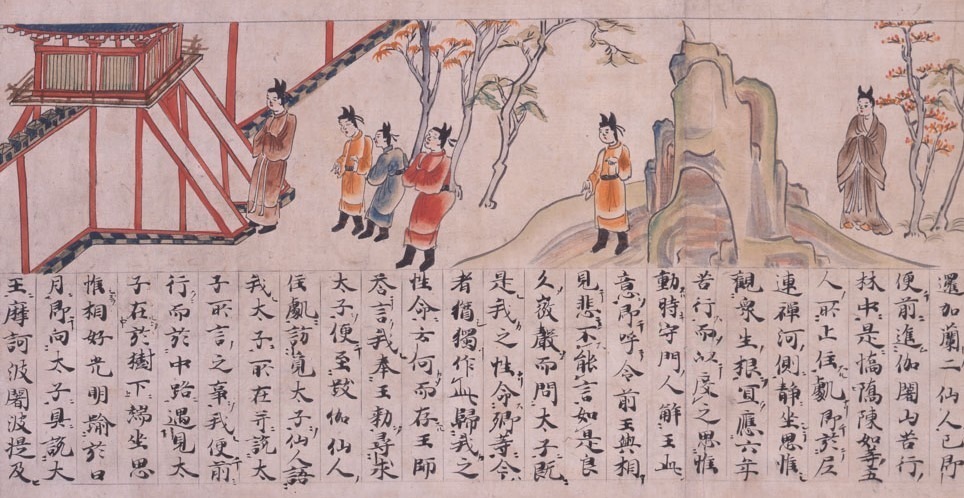 邏加蘭二仙人已即
便前進伽闍山苦行
林中是憍陳如等五
人所止住處即於尼
連禪河側靜坐思惟
觀衆生根冝應六年
苦行而以度之思惟
動時守門人解王此
意即呼令前王與相
見悲不能言如是良
久微聲而問太子既
是我之性命卿等今
者猶獨作此歸我之
性命云何而存王師
荅言我奉王勑尋求
太子便至跋伽仙人
住處訪覓太子仙人語
我太子所在并說太
子所言之事我便前
行而於中路遇見太
子在於樹下端坐思
惟相好光明踰於日
月即向太子具說大
王摩訶波闍波提及